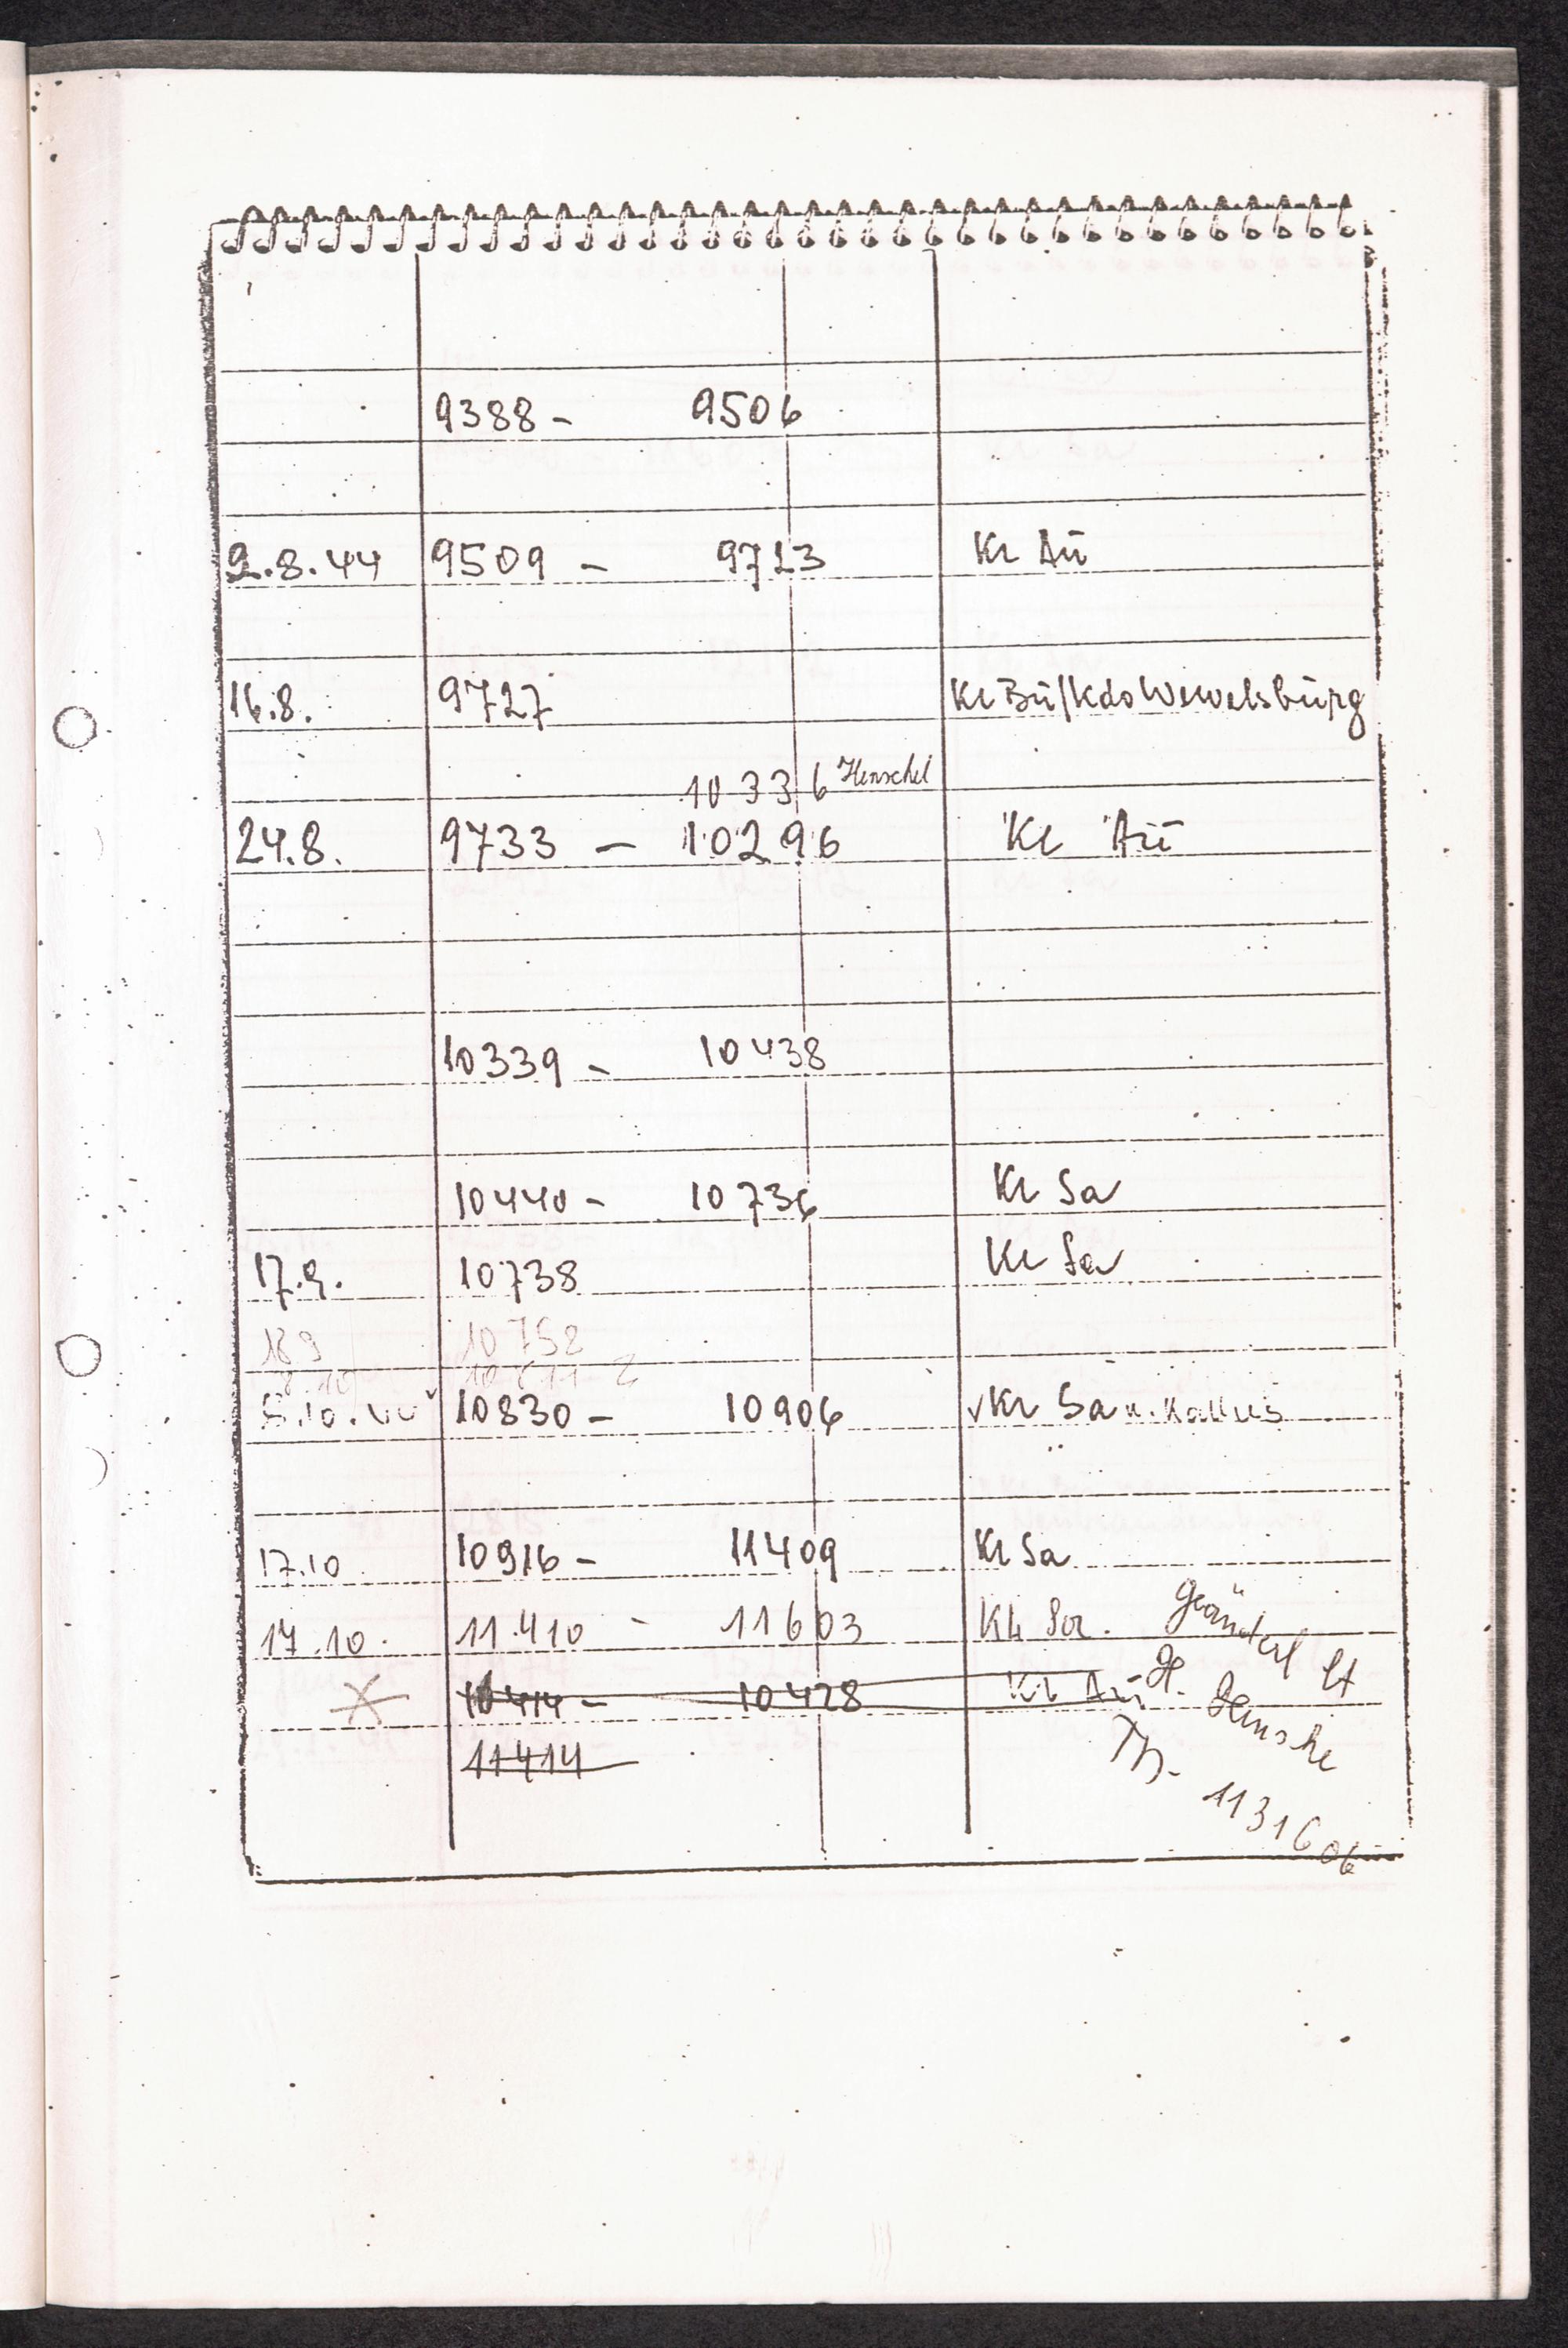 9388 - 9506
2.8.44 9509 - 9723 Kl Aü
16.8. 9727 Kl Bü/Kdo Wewelsbürg
10336 Henschel
24.8. 9733 - 10296 Kl Aü
10339 - 10438
10440 - 10736 Kl Sa
17.9. 10738 Kl Sa
18 9 10752
8.10
5.10.44 10830 - 10906 Kl Sa u.
17.10 10916 - 11409 Kl Sa
17.10. 11.410 - 11603 Kl Sa. Geändert lt
10414 - 10428 Kl Aü H.
11414
Th. 11316 06